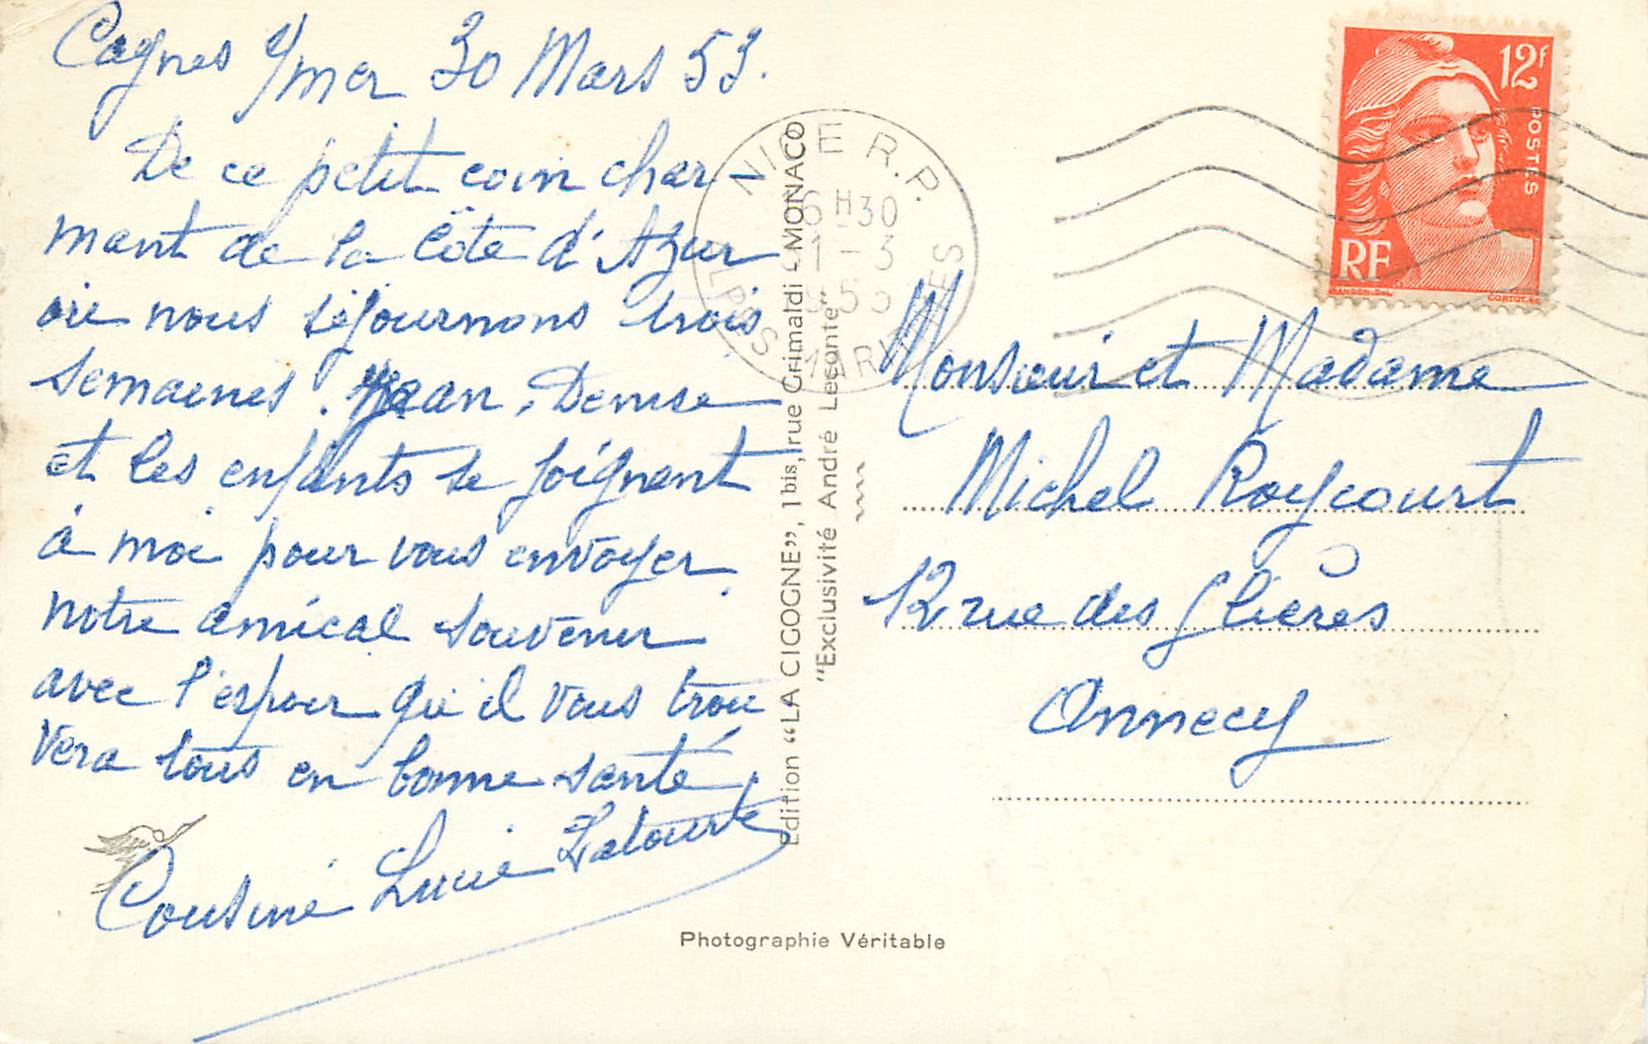 Cagnes s/mer 30 Mars 53.
De ce petit coin char-
mant de la Côte d'Azur
où nous séjournons trois
semaines. Jean, Denise
et les enfants se joignent
à moi pour vous envoyer
notre amical souvenir
avec l'espoir qu'il vous trou
vera tous en bonne santé,
Cousine Lucie
Edition “LA CICOGNE”, 1bis, rue Grimaldi - MONACO
"Exclusivité André Leconte"
Photographie Véritable
NICE R.P.
6H30
1-3
ALPES MARITIMES
12f
POSTES
RF
Monsieur et Madame
Michel Roycourt
12 rue des Glières
Annecy